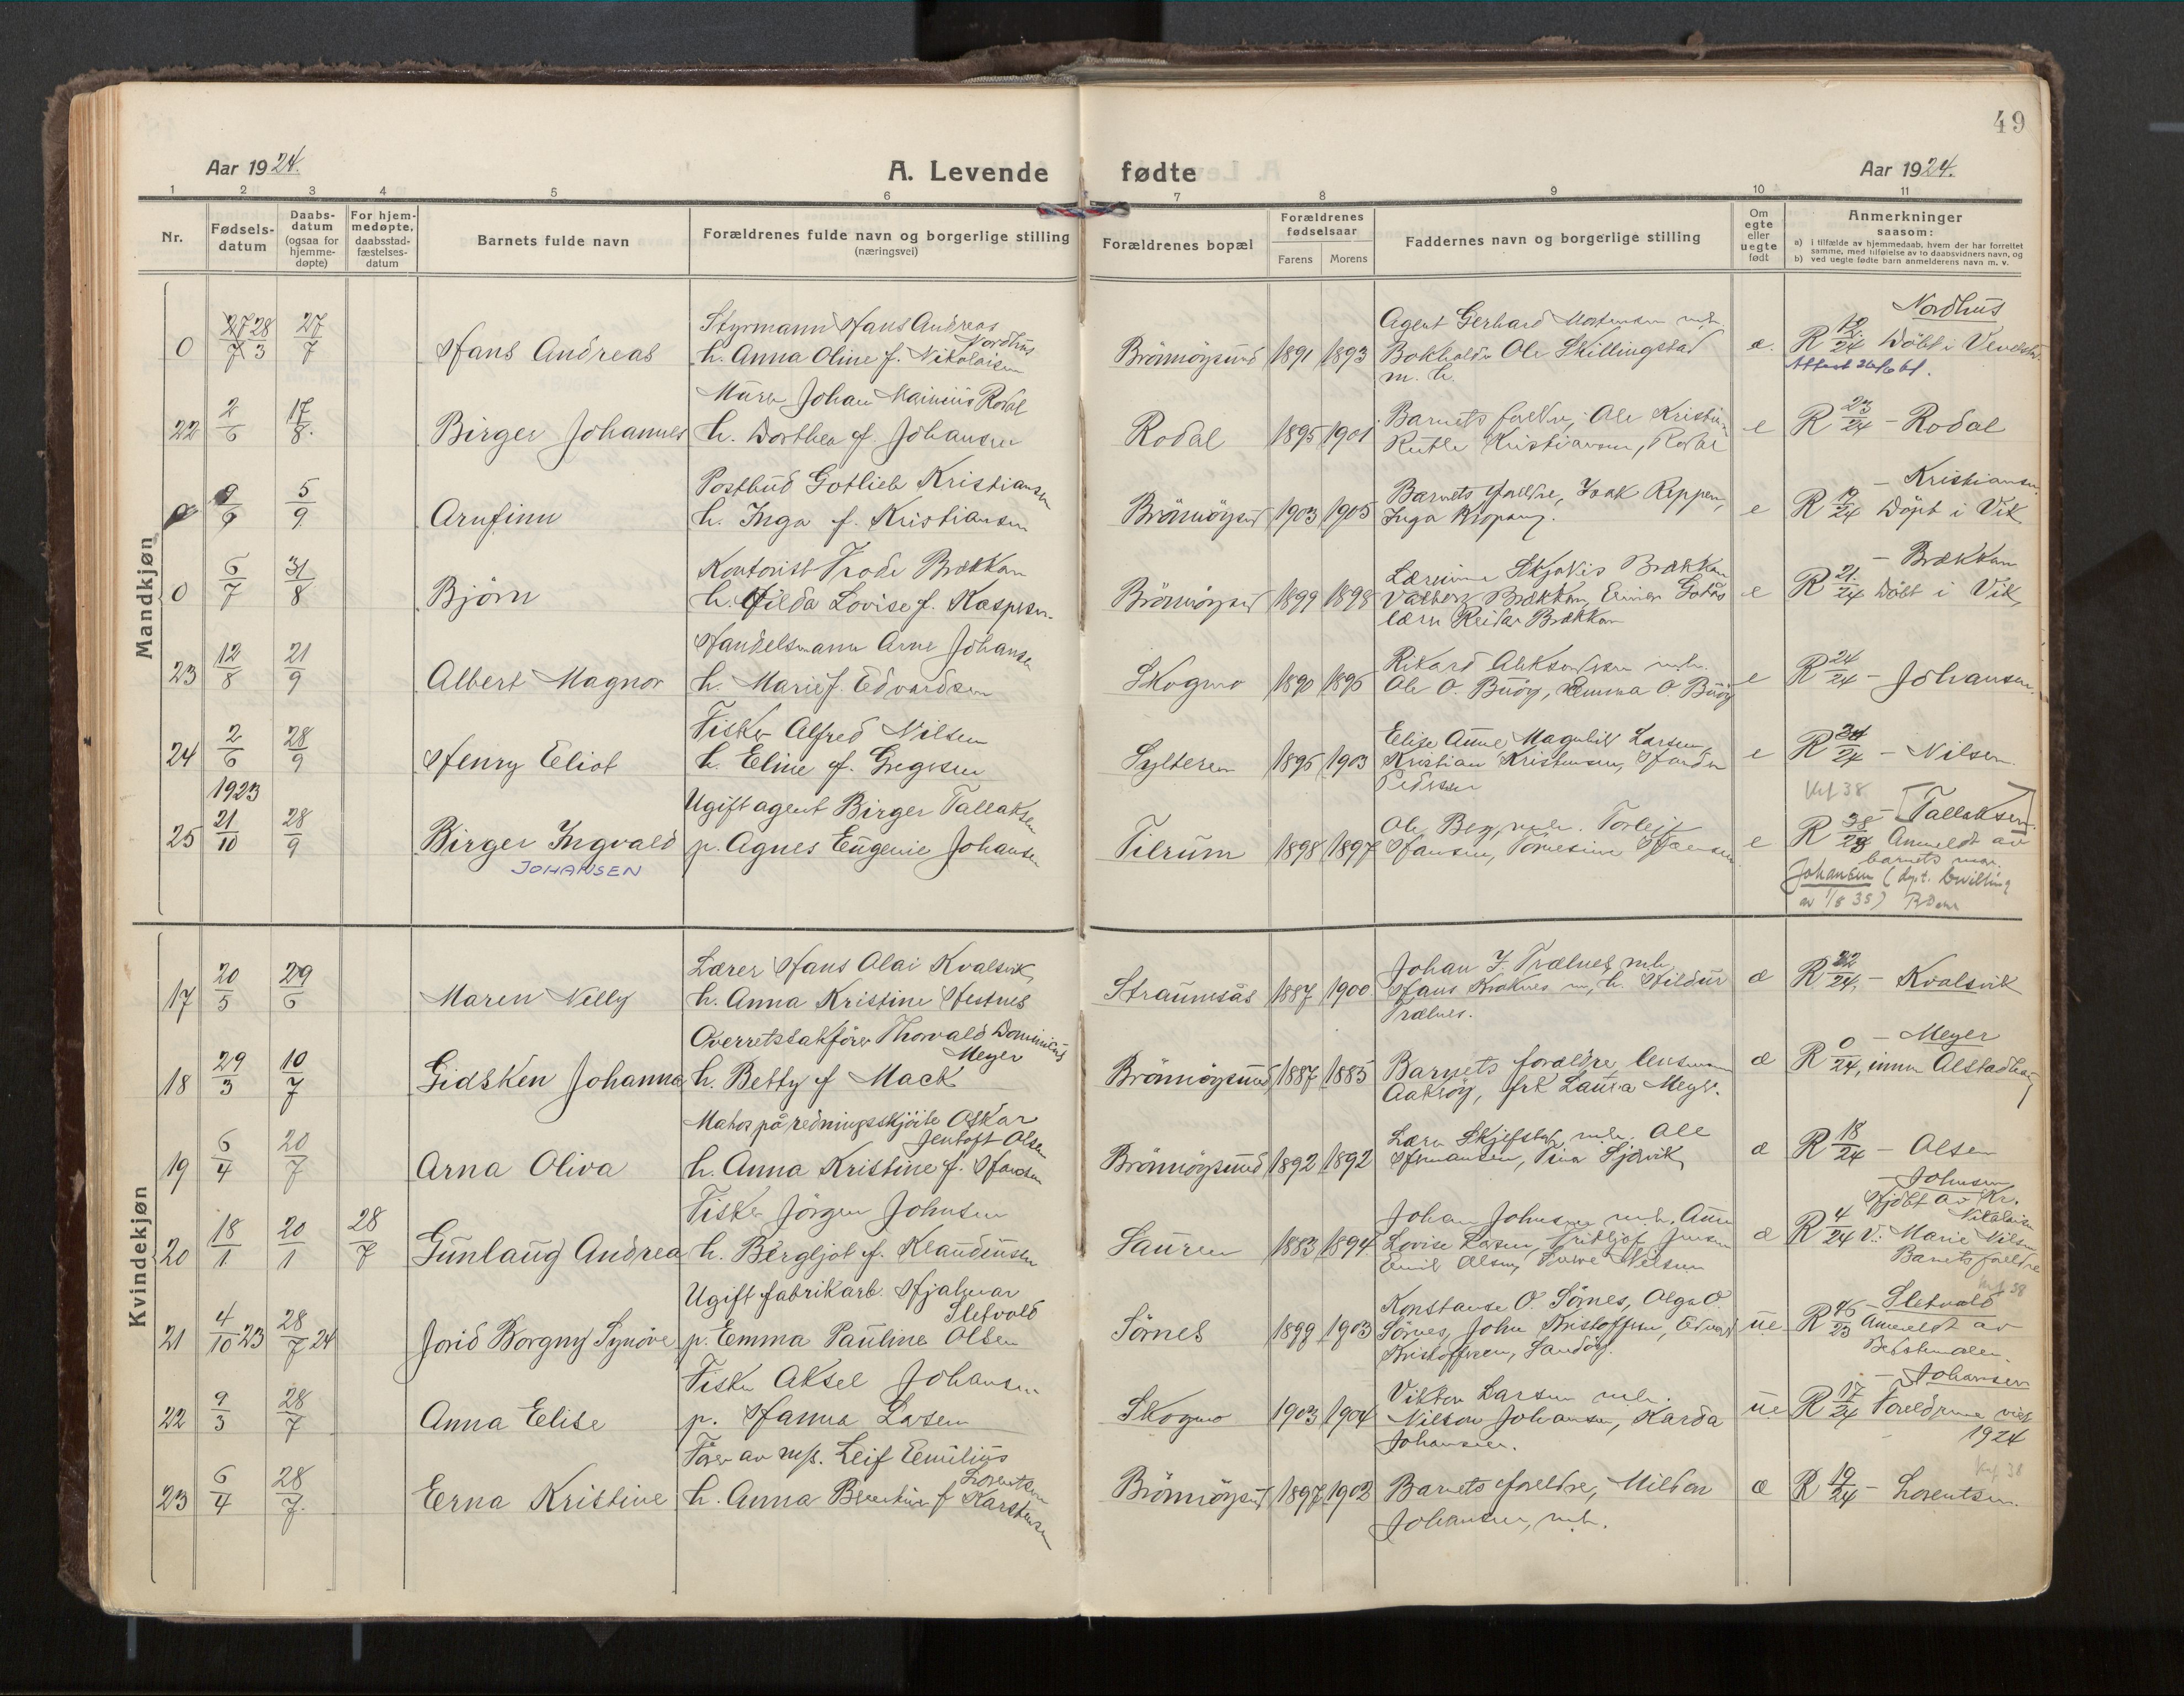 49
Aar 1924.
A. Levende fødte
Aar 1924.
1 2 3 4 5 6 7 8 9 10 11
Nr.
Fødsels-
datum
Daabs-
datum
(ogsaa for
hjemme-
døpte)
For hjem-
medøpte,
daabsstad-
fæstelses-
datum
Barnets fulde navn
Forældrenes fulde navn og borgerlige stilling
(næringsvei)
Forældrenes bopæl
Forældrenes
fødselsaar
Farens Morens
Faddernes navn og borgerlige stilling
Om
egte
eller
uegte
født
Anmerkninger
saasom:
a) i tilfælde av hjemmedaab, hvem der har forrettet
samme, med tilføielse av to daabsvidners navn, og
b) ved uegte fødte barn anmelderens navn m. v.
Mandkjøn
0 28/3 27/7
Hans Andreas
Styrmann Hans Andreas
Nordhus
h. Anna Oline f. Nikolaisen
Brönnöysund 1891 1893
Agent Gerhard Mortensen m.h.
Bokholder Ole Skillingstad
m. h.
æ.
Nordhus
R 19/24 Döbt i Vevelstad
Attest 26/6 61.
22 2/6 17/8.
Birger Johannes
Johan Rodal
h. Dorthea f. Johansen
Rodal 1895 1901
Barnets foreldre, Ole
Kristiansen, Rodal
e
R 23/24 - Rodal
9/6 5/9
Arnfinn
Postbud Gotlieb Kristiansen
h. Inga f. Kristiansen
Brönnöysund 1903 1905
Barnets foreldre,
Inga
e
- Kristiansen.
R 19/24 Döpt i Vik
0 6/7 31/8
Björn
Kontorist Frode Brækkan
h. Hilda Lovise f. Kaspersen.
Brönnöysund 1899 1898
Lærerinne Brækkan
Valborg Brækkan,
lærer Reidar Brækkan
e
- Brækkan
R 21/24 Döbt i Vik
23 12/8 21/9
Albert Magnor
Handelsmann Arne Johansen
h. Marie f. Edvardsen
Skogmo 1890 1895
Rikard Aleksandersen m.h.
Ole O. Buöy, Emma O. Buöy
e
R 24/24 - Johansen.
24 2/6 28/9
Henry Eliot
Fisker Alfred Nilsen
h. Eline f. Gregersen
Sylteren 1895 1903
Elise Anne, Magnhild Larsen,
Kristian Kristensen,
Pedersen
e
R 34/24 - Nilsen.
1923
25 21/10 28/9
Birger Ingvald
JOHANSEN
Ugift agent Birger Tallaksen
p. Agnes Eugenie Johansen
Tilrum 1898 1897
Ole Berg, m.h. Torleif
Hansen,
e
Kef 38
- [Tallaksen]
R 38/23 Anmeldt av
barnets mor.
Johansen
av 1/8 35)
Kvindekjøn
17 20/5 29/6
Maren Nelly
Lærer Hans Olai Kvalsvik,
h. Anna Kristine Hestnes
Straumsås 1887 1900
Johan J. Trælnes m.h.
Hans m. h. Hildur
Trælnes.
æ
R 22/24. - Kvalsvik
18 29/3 10/7
Gidsken Johanna
Overretssakförer Thorvald Dominicus
Meyer
h. Betty f Mack
Brönnöysund 1887 1885
Barnets forældre,
frk Laura Meyer.
æ
- Meyer
R 0/24, innm Alstadhaug
19 6/4 20/7
Arna Oliva
Matros på redningsskjöite Oskar
Jentoft Olsen
h. Anna Kristine f. Hansen
Brönnöysund 1892 1892
Lærer Skjefstad m.h. Ole
Hermansen,
æ
R 18/24 - Olsen
20 18/1 20/1 28/7
Gunlaug Andrea
Fisker Jörgen Johnsen
h. Bergljot f. Klaudiussen
Sauren 1883 1894
Johan Johnsen m.h. Anna
Lovise Larsen, Fritjof Jensen
Emil Olsen, Nilsen
æ
- Johnsen
Hjdöbt av Kr.
Nikolaisen
R 4/24 V: Marie Nilsen
Barnets foreldre
21 4/10 23 28/7 24
Jorid Borgny Synöve
Ugift fabrikarb. Hjalmar
Sletvold
p. Emma Pauline Olsen
Sörnes 1899 1903
Konstanse O. Sörnes, Olga O.
Sörnes, John Kristoffersen, Edvard
Kristoffersen, Sandöy.
ue
Kef 38
R 46/23 - Sletvold
Anmeldt av
22 9/3 28/7
Anna Elise
Fisker Aksel Johansen
p. Hanna Larsen
Skogmo 1903 1904
Viktor Larsen m.h.
Nilson Johansen, Karda
Johansen.
ue
- Johansen
R 17/24 Foreldrene viet
1924
23 6/4 28/7.
Erna Kristine
Förer av m/s. Leif Emilius
Lorentsen
h. Anna f Karstensen
Brönnöysund 1897 1902
Barnets foreldre, Milton
Johansen, m.h.
æ
Kef 38
R 19/24 - Lorentsen.